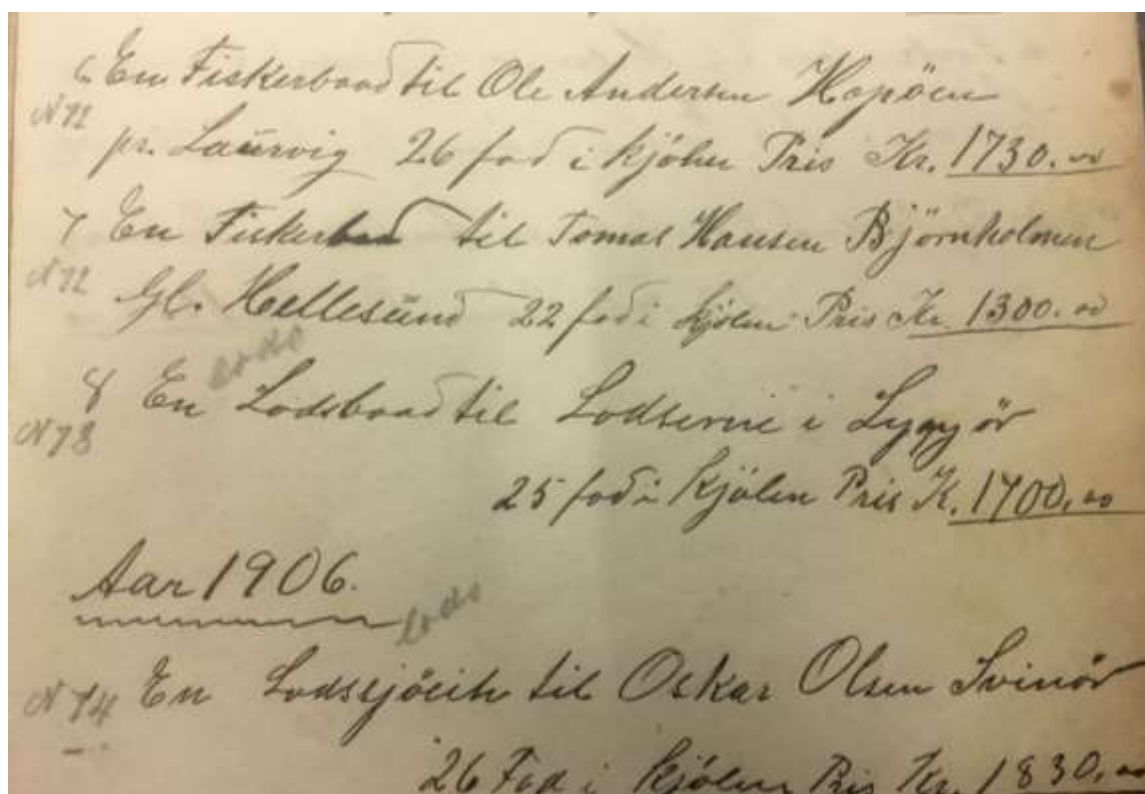 6 En Fiskerbaad til Ole Andersen Hapöen
N 71
pr. Laurvig 26 fod i kjölen Pris Kr. 1730.00
7 En Fiskerbaad til Tomas Hansen Björnholmen
N 72
Gl. Hellesund 22 fod i kjölen Pris Kr. 1300.00
lods
8 En Lodsbaad til Lodserne i Lyngör
N 73
25 fod i Kjölen Pris K. 1700.00
Aar 1906.
lods
N 74 En Lodssjöite til Oskar Olsen Svinör
26 Fod i Kjölen Pris Kr. 1830.00